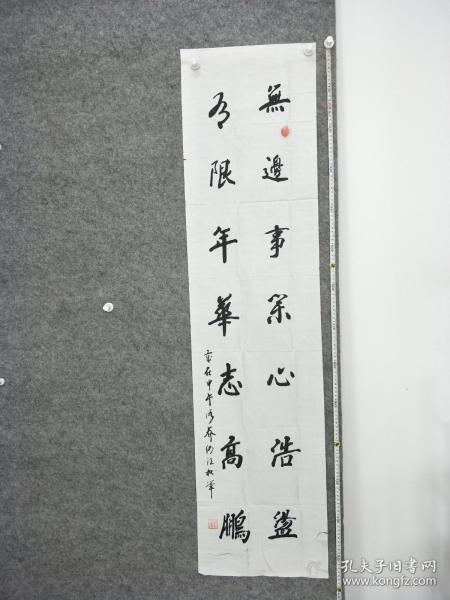 無邊事業心浩盪
有限年華志高鵬
歲在甲午
孔夫子旧书网
www.kongfz.com